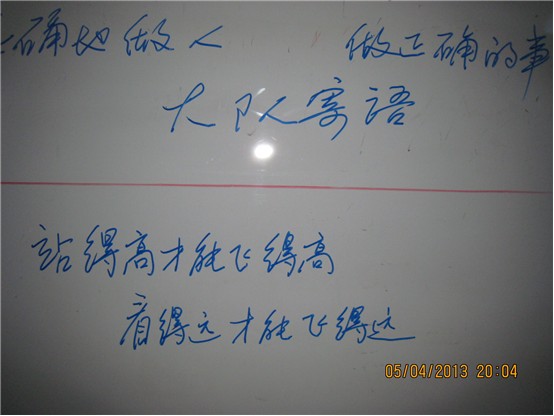 正确地做人 做正确的事
大队寄语
站得高才能飞得高
看得远才能飞得远
05/04/2013 20:04